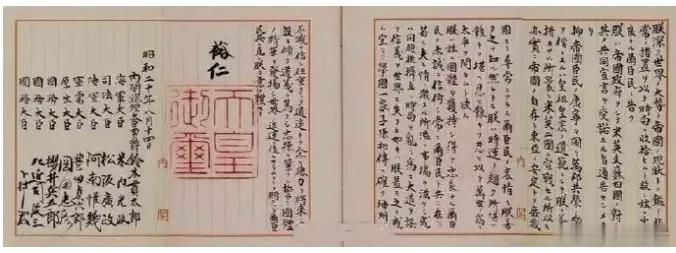 朕深ク世界ノ大勢ト帝國ノ現狀トニ鑑ミ非
常ノ措置ヲ以テ時局ヲ收拾セムト欲シ茲ニ忠
良ナル爾臣民ニ告ク
朕ハ帝國政府ヲシテ米英支蘇四國ニ對シ
其ノ共同宣言ヲ受諾スル旨通告セシメタリ
抑々帝國臣民ノ康寧ヲ圖リ萬邦共榮ノ樂
ヲ偕ニスルハ皇祖皇宗ノ遺範ニシテ朕ノ拳
々措カサル所曩ニ米英二國ニ宣戰セル所以モ
亦實ニ帝國ノ自存ト東亞ノ安定トヲ庶幾
内閣
固ヨリ尋常ニアラス爾臣民ノ衷情モ朕善
ク之ヲ知ル然レトモ朕ハ時運ノ趨ク所堪ヘ
難キヲ堪ヘ忍ヒ難キヲ忍ヒ以テ萬世ノ爲ニ
太平ヲ開カムト欲ス
朕ハ茲ニ國體ヲ護持シ得テ忠良ナル爾臣
民ノ赤誠ニ信倚シ常ニ爾臣民ト共ニ在リ
若シ夫レ情ノ激スル所濫ニ事端ヲ滋クシ或
ハ同胞排擠互ニ時局ヲ亂リ爲ニ大道ヲ誤
リ信義ヲ世界ニ失フカ如キハ朕最モ之ヲ戒
ム宜シク擧國一家子孫相傳ヘ確ク神州ノ
不滅ヲ信シ任重クシテ道遠キヲ念ヒ總力ヲ將來ノ
建設ニ傾ケ道義ヲ篤クシ志操ヲ鞏クシ誓テ國體
ノ精華ヲ發揚シ世界ノ進運ニ後レサラムコトヲ期スヘシ爾臣
民其レ克ク朕カ意ヲ體セヨ
裕仁
天皇
御璽
内閣
昭和二十年八月十四日
内閣總理大臣男爵鈴木貫太郎
海軍大臣 米内光政
司法大臣 松阪廣政
陸軍大臣 阿南惟幾
軍需大臣 豊田貞次郎
厚生大臣 岡田忠彦
國務大臣 櫻井兵五郎
國務大臣 左近司政三
國務大臣 下村宏